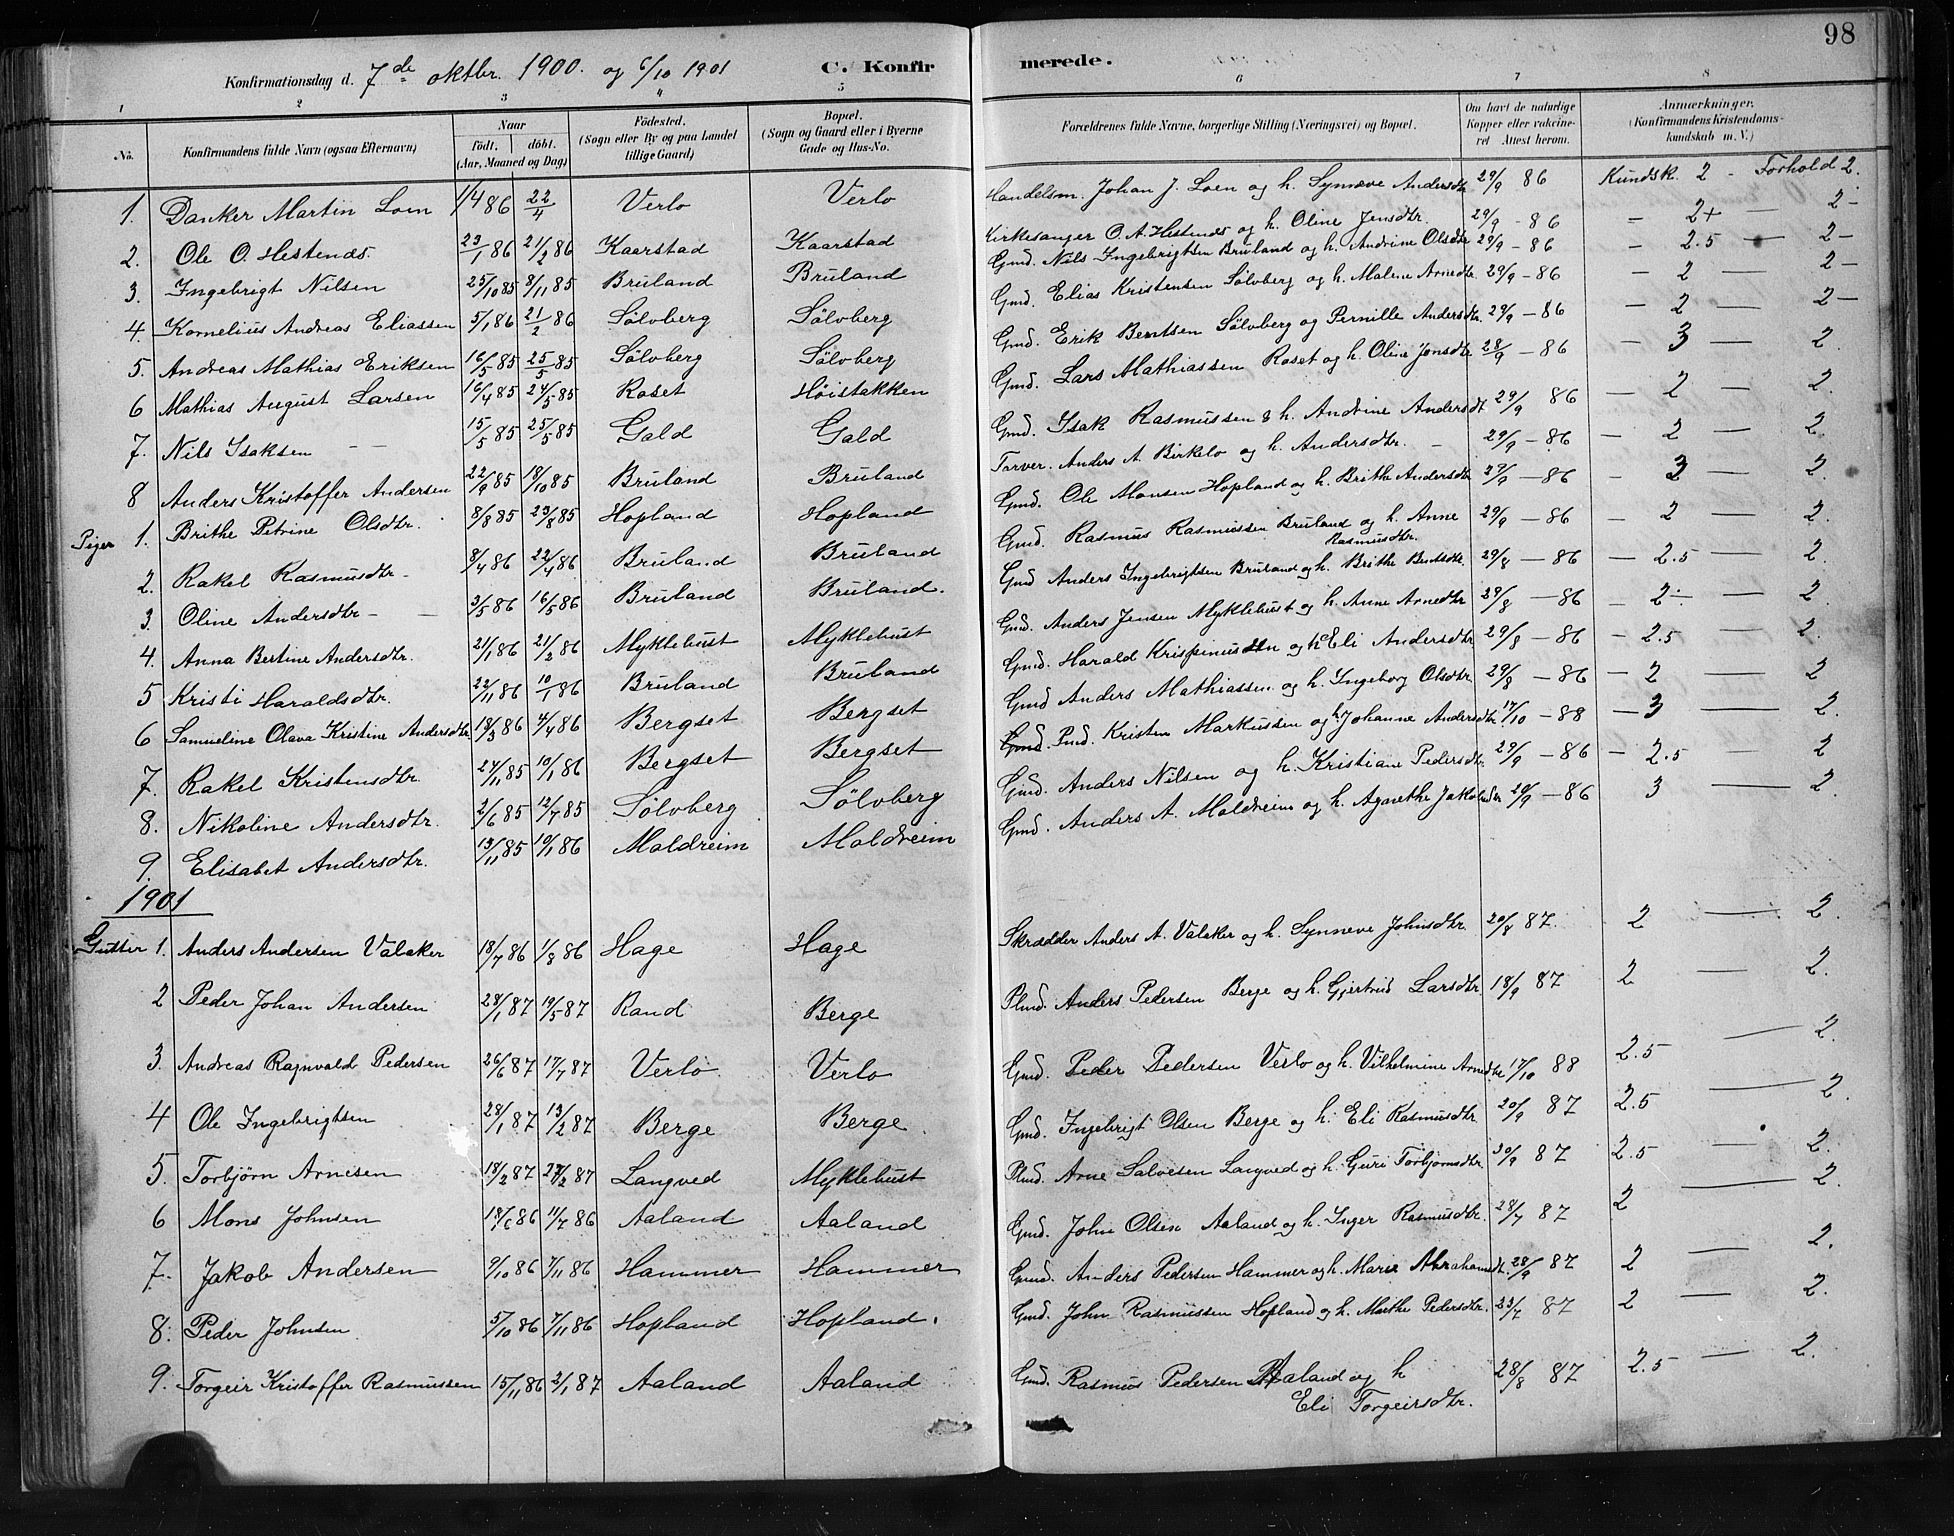 98
Konfirmationsdag d. 7de oktbr. 1900. og 6/10 1901 C. Konfirmerede.
1 2 3 4 5 6 7 8
No. Konfirmandens fulde Navn (ogsaa Efternavn) Naar født. døbt. (Aar, Maaned og Dag) Fødested. (Sogn eller By og paa Landet tillige Gaard) Bopæl. (Sogn og Gaard eller i Byerne Gade og Hus-No. Forældrenes fulde Navne, borgerlige Stilling (Næringsvei) og Bopæl. Om havt de naturlige Kopper eller vakcineret Attest herom. Anmærkninger. (Konfirmandens Kristendomskundskab m. V.)
1. Danker Martin Loen 1/4 86 22/4 Verlo Verlo Handelsm. Johan J. Loen og h. Synneve Andersdtr 29/9 86 Kundsk. 2 - Forhold 2.
2. Ole O. Hestends. 23/1 86 21/2 86 Kaarstad Kaarstad Kirkesanger O. A. Hestends og h. Oline Jensdtr. 29/9 - 86 - 2+ — 2-
3. Ingebrigt Nilsen 25/10 85 8/11 85 Bruland Bruland Gmd. Nils Ingebrigtsen Bruland og h. Andrine Olsdtr 29/9 - 86 - 2.5 — 2-
4. Kornelius Andreas Eliassen 5/1 86 21/2 86 Sölvberg Sölvberg Gmd. Elias Kristensen Sölvberg og h. Malene Arnedtr. 29/9 - 86 - 2 — 2-
5. Andreas Mathias Eriksen 16/5 85 25/5 85 Sölvberg Sölvberg Gmd. Erik Bentsen Sölvberg og Pernille Andersdtr. 29/9 - 86 - 2 — 2-
6 Mathias August Larsen 16/4 85 24/5 85 Roset Höistakken Gmd. Lars Mathiassen Roset og h. Oline Jonsdtr 28/9 - 86 - 3 — 2.
7. Nils Isaksen — 15/5 85 25/5 85 Gald Gald Gmd. Isak Rasmussen & h. Andrine Andersdt 29/9 86 - 2 — 2.
8 Anders Kristoffer Andersen 22/9 85 18/10 85 Bruland Bruland Torver. Anders A. Birkelo og h. Andersdtr. - 29/9 - 86 - 2 — 2.
Piger 1. Brithe Petrine Olsdtr. 8/8 85 23/8 85 Hopland Hopland Gmd. Ole Monsen Hopland og h. Brithe Andersdtr 29/9 - 86 - 3 — 2.
2. Rakel Rasmusdtr - 8/4 86 22/4 86 Bruland Bruland Gmd. Rasmus Rasmussen Bruland og h. Anne Rasmusdtr. 29/9 - 86 - 2 — 2.
3. Oline Andersdtr - 3/5 86 16/5 86 Bruland Bruland. Gmd Anders Ingebrigtsen Bruland og h. Brithe Bentsdtr. 29/8 - 86 - 2.5 — 2.
4. Anna Bertine Andersdtr. 21/1 86 21/2 86 Myklebust Myklebust Gmd. Anders Jensen Myklebust og h. Anne Arnedtr 29/8 - 86 - 2- — 2.
5 Kristi Haraldsdtr. 22/11 86 10/1 86 Bruland Bruland Gmd. Harald Krispinussen og h Eli Andersdtr. 29/8 - 86 - 2.5 2.
6 Samueline Olava Kristine Andersdtr. 18/3 86 4/4 86 Bergset Bergset Gmd Anders Mathiassen og h. Ingeborg Olsdtr. 29/8 - 86 - 2 — 2
7. Rakel Kristensdtr. 24/11 85 10/1 86 Bergset Bergset Pmd. Kristen Markussen og h. Johanne Andersdtr 17/10 - 88 - 3 — 2.
8. Nikoline Andersdtr. 2/6 85 12/7 85 Sölvberg Sölvberg Gmd. Anders Nilsen og h. Kristiane Pedersdtr. 29/9 - 86 - 2.5 2
9. Elisabet Andersdtr. 13/11 85 10/1 86 Maldreim Maldreim Gmd. Anders A. Maldreim og h. Agnethe Jakobsdtr 29/9 - 86 3 — 2.
1901
Gutter 1. Anders Andersen Valaker 18/7 86 1/8 86 Hage Hage Skrædder Anders A. Valaker og h. Synneve Johnsdtr. 20/8 87. 2 — 2.
2 Peder Johan Andersen 28/1 87 19/5 87 Rand Berge Plmd. Anders Pedersen Berge og h. Gjertrud Larsdtr. 18/9 87 2 — 2.
3. Andreas Ragnvald Pedersen 26/6 87 17/7 87 Verlo Verlo Gmd. Peder Pedersen Verlo og h. Vilhelmine Arnedtr. 17/10 88 2.5 — 2.
4 Ole Ingebrigtsen 28/1 87 13/2 87 Berge Berge. Gmd. Ingebrigt Olsen Berge og h. Eli Rasmusdtr. 20/9 87 2.5 — 2.
5. Torbjörn Arnesen 18/2 87 27/2 87 Langved Myklebust Plmd. Arne Salvesen Langved og h. Guri Torbjörnsdtr. 20/9 87 2.5 — 2.
6 Mons Johnsen 18/6 86 11/7 86 Aaland Aaland Gmd. John Olsen Aaland og h. Inger Rasmusdtr. 28/7 87 2 — 2.
7. Jakob Andersen 9/10 86 7/11 86 Hammer Hammer Gmd. Anders Pedersen Hammer og h. Marie Abrahamsdt. 28/9 87 2 — 2.
8. Peder Johnsen. 5/10 86 7/11 86 Hopland Hopland. Gmd. John Rasmussen Hopland og h. Marthe Pedersdtr. 23/7 87 2 — 2.
9. Torgeir Kristoffer Rasmussen 15/11 86 2/1 87 Aaland Aaland Gmd. Rasmus Pedersen Aaland og h Eli Torgeirsdtr. 28/8 87 2.5 — 2.